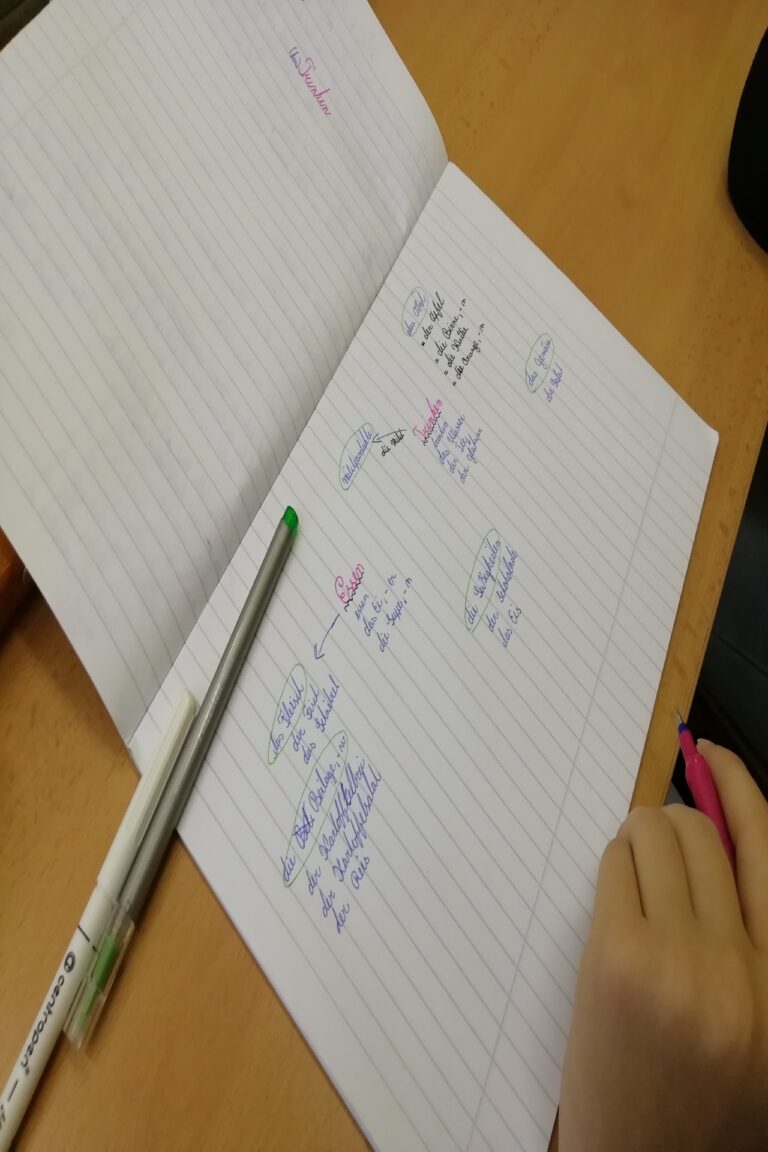 Trinken
das Obst
= der Apfel
= die Birne, -n
= die Kiste
= die Orange, -n
das Gemüse
der Salat
Trinken
trinken
das Wasser
der Tee
der Glühen
die Milch
milchprodukte
Essen
essen
das Ei, -er
die Suppe, -n
die Süßigkeiten
der Schokolade
das Eis
das Fleisch
der Fisch
das Schnitzel
die Beilage, -n
der Kartoffelbrei
der Kartoffelsalat
der Reis
centropen